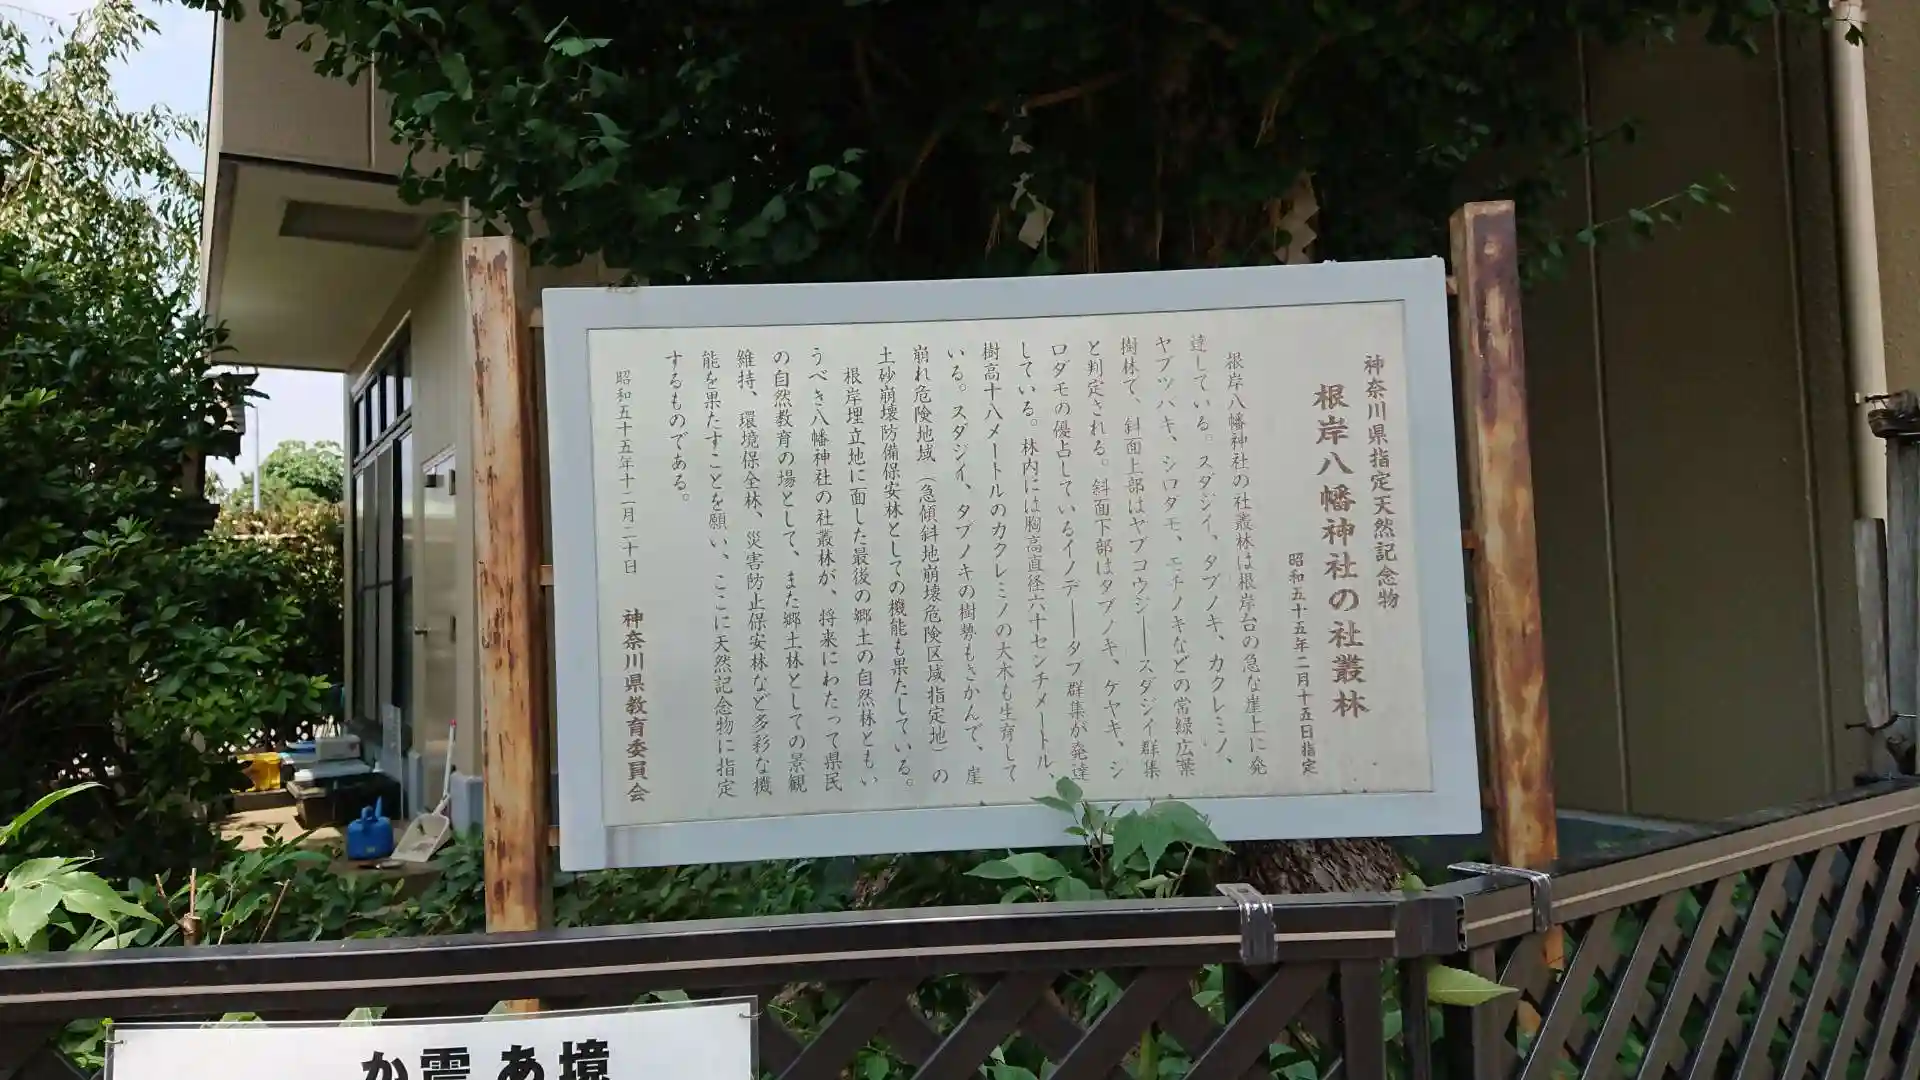 神奈川県指定天然記念物
根岸八幡神社の社叢林
昭和五十五年二月十五日指定
根岸八幡神社の社叢林は根岸台の急な崖上に発
達している。スダジイ、タブノキ、カクレミノ、
ヤブツバキ、シロダモ、モチノキなどの常緑広葉
樹林で、斜面上部はヤブコウジ——スダジイ群集
と判定される。斜面下部はタブノキ、ケヤキ、シ
ロダモの優占しているイノデ——タブ群集が発達
している。林内には胸高直径六十センチメートル、
樹高十八メートルのカクレミノの大木も生育して
いる。スダジイ、タブノキの樹勢もさかんで、崖
崩れ危険地域（急傾斜地崩壊危険区域指定地）の
土砂崩壊防備保安林としての機能も果たしている。
根岸埋立地に面した最後の郷土の自然林ともい
うべき八幡神社の社叢林が、将来にわたって県民
の自然教育の場として、また郷土林としての景観
維持、環境保全林、災害防止保安林など多彩な機
能を果たすことを願い、ここに天然記念物に指定
するものである。
昭和五十五年十二月二十日
神奈川県教育委員会
か震あ境